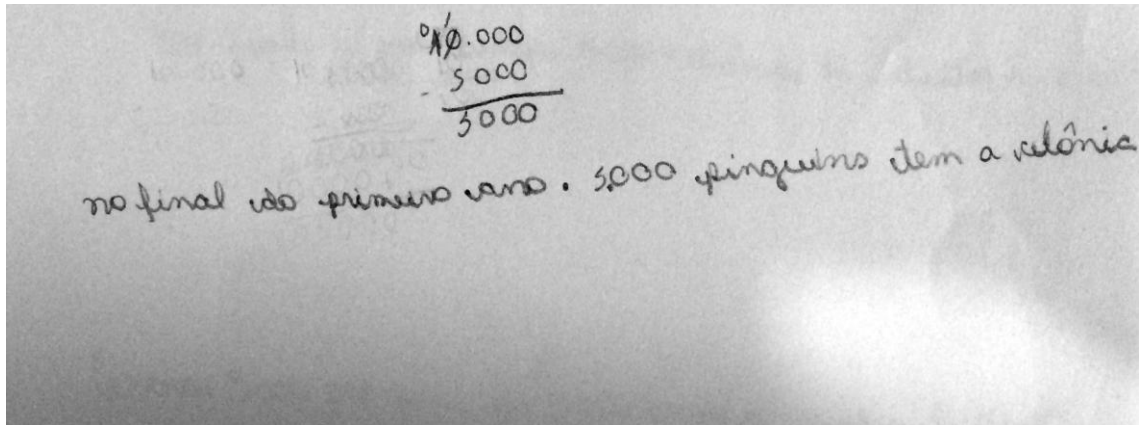 10.000
- 5000
5000
no final do primeiro ano. 5.000 pinguins tem a colônia